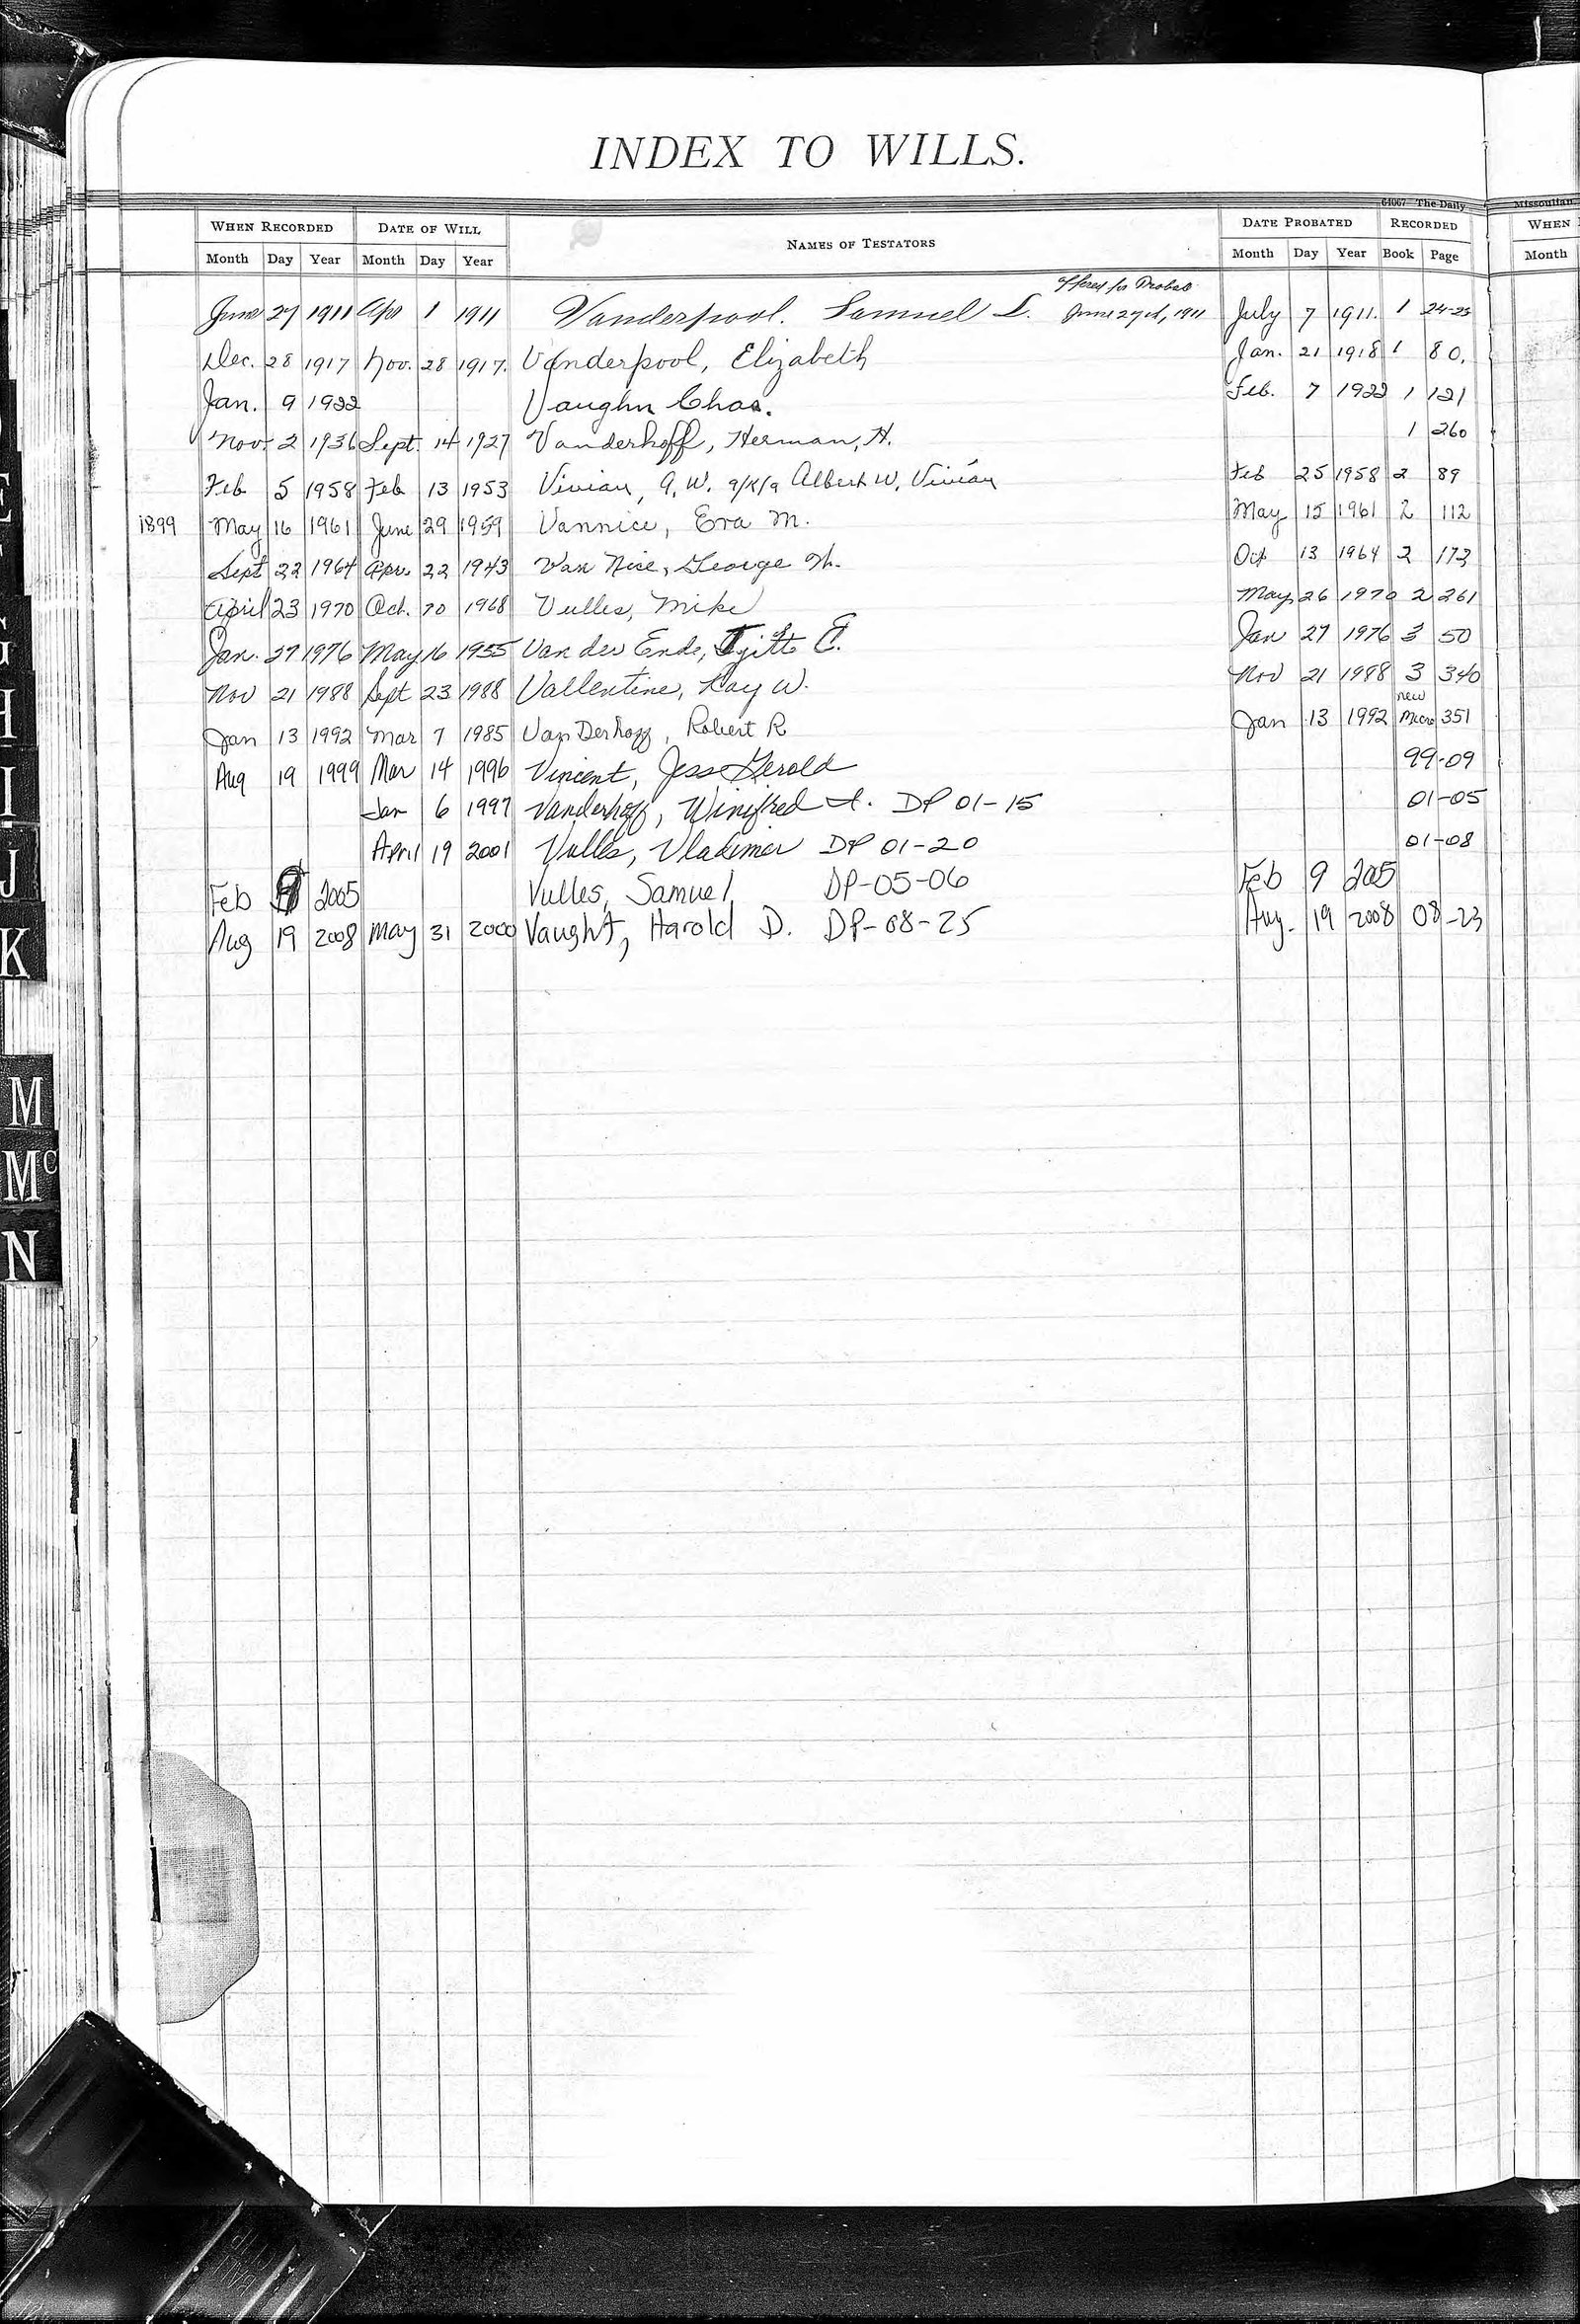 INDEX TO WILLS.
64067 The Daily Missoulian
WHEN RECORDED DATE OF WILL NAMES OF TESTATORS DATE PROBATED RECORDED WHEN
Month Day Year Month Day Year Month Day Year Book Page Month
Offered for Probate
June 27 1911 Apr 1 1911 Vanderpool. Samuel L. June 27th, 1911 July 7 1911. 1 24-25
Dec. 28 1917 Nov. 28 1917. Vanderpool, Elizabeth Jan. 21 1918 1 80.
Jan. 9 1922 Vaughn Chas. Feb. 7 1922 1 121
Nov. 2 1936 Sept. 14 1927 Vanderhoff, Herman, H. 1 260
Feb 5 1958 Feb 13 1953 Vivian, A. W. a/k/a Albert W. Vivian Feb 25 1958 2 89
1899 May 16 1961 June 29 1959 Vannice, Eva M. May 15 1961 2 112
Sept 22 1964 Apr. 22 1943 Van Nice, George W. Oct 13 1964 2 173
April 23 1970 Oct. 10 1968 Vulles, Mike May 26 1970 2 261
Jan. 27 1976 May 16 1955 Van der Ende, E. Jan 27 1976 3 50
Nov 21 1988 Sept 23 1988 Vallentine, Ray W. Nov 21 1988 3 340
new
Jan 13 1992 Mar 7 1985 VanDerhoff, Robert R Jan 13 1992 Micro 351
Aug 19 1999 Mar 14 1996 Vincent, Jess Gerold 99-09
Jan 6 1997 Vanderhoff, Winifred I. DP 01-15 01-05
April 19 2001 Vulles, Vladimer DP 01-20 01-08
Feb 9 2005 Vulles, Samuel DP-05-06 Feb 9 2005
Aug 19 2008 May 31 2000 Vaught, Harold D. DP-08-25 Aug. 19 2008 08-23
E
G
H
I
J
K
M
Mc
N